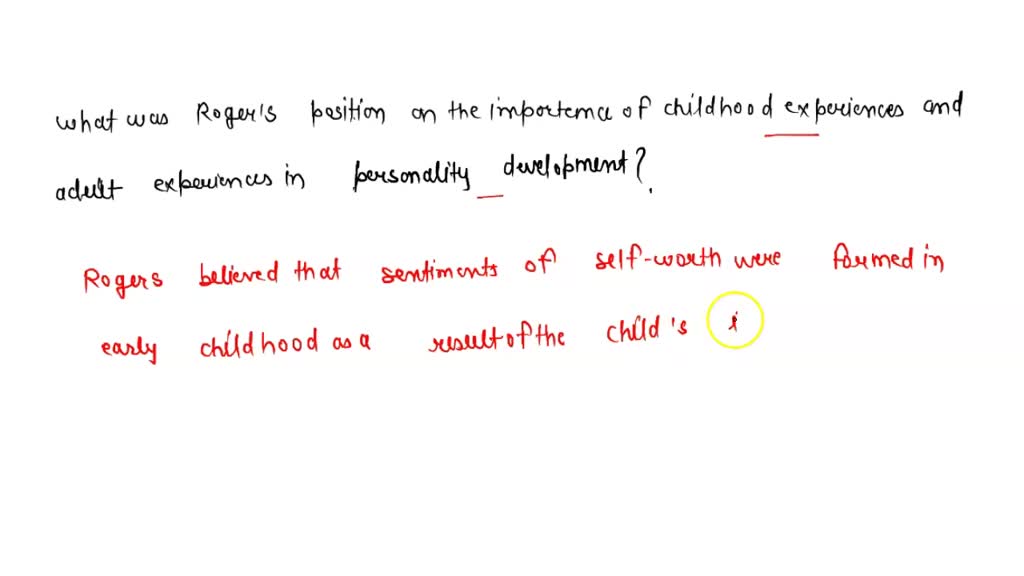 what was Roger's position on the importema of childhood experiences and
adult experiences in personality development?
Rogers believed that sentiments of self-worth were formed in
early childhood as a result of the child's i